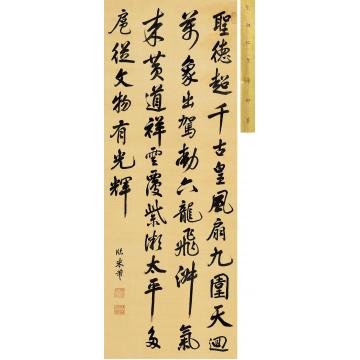 聖德超千古皇風扇九圍天迴
萬象出駕動六龍飛淑氣
来黄道祥雲覆紫微太平多
扈從文物有光輝
臨米芾